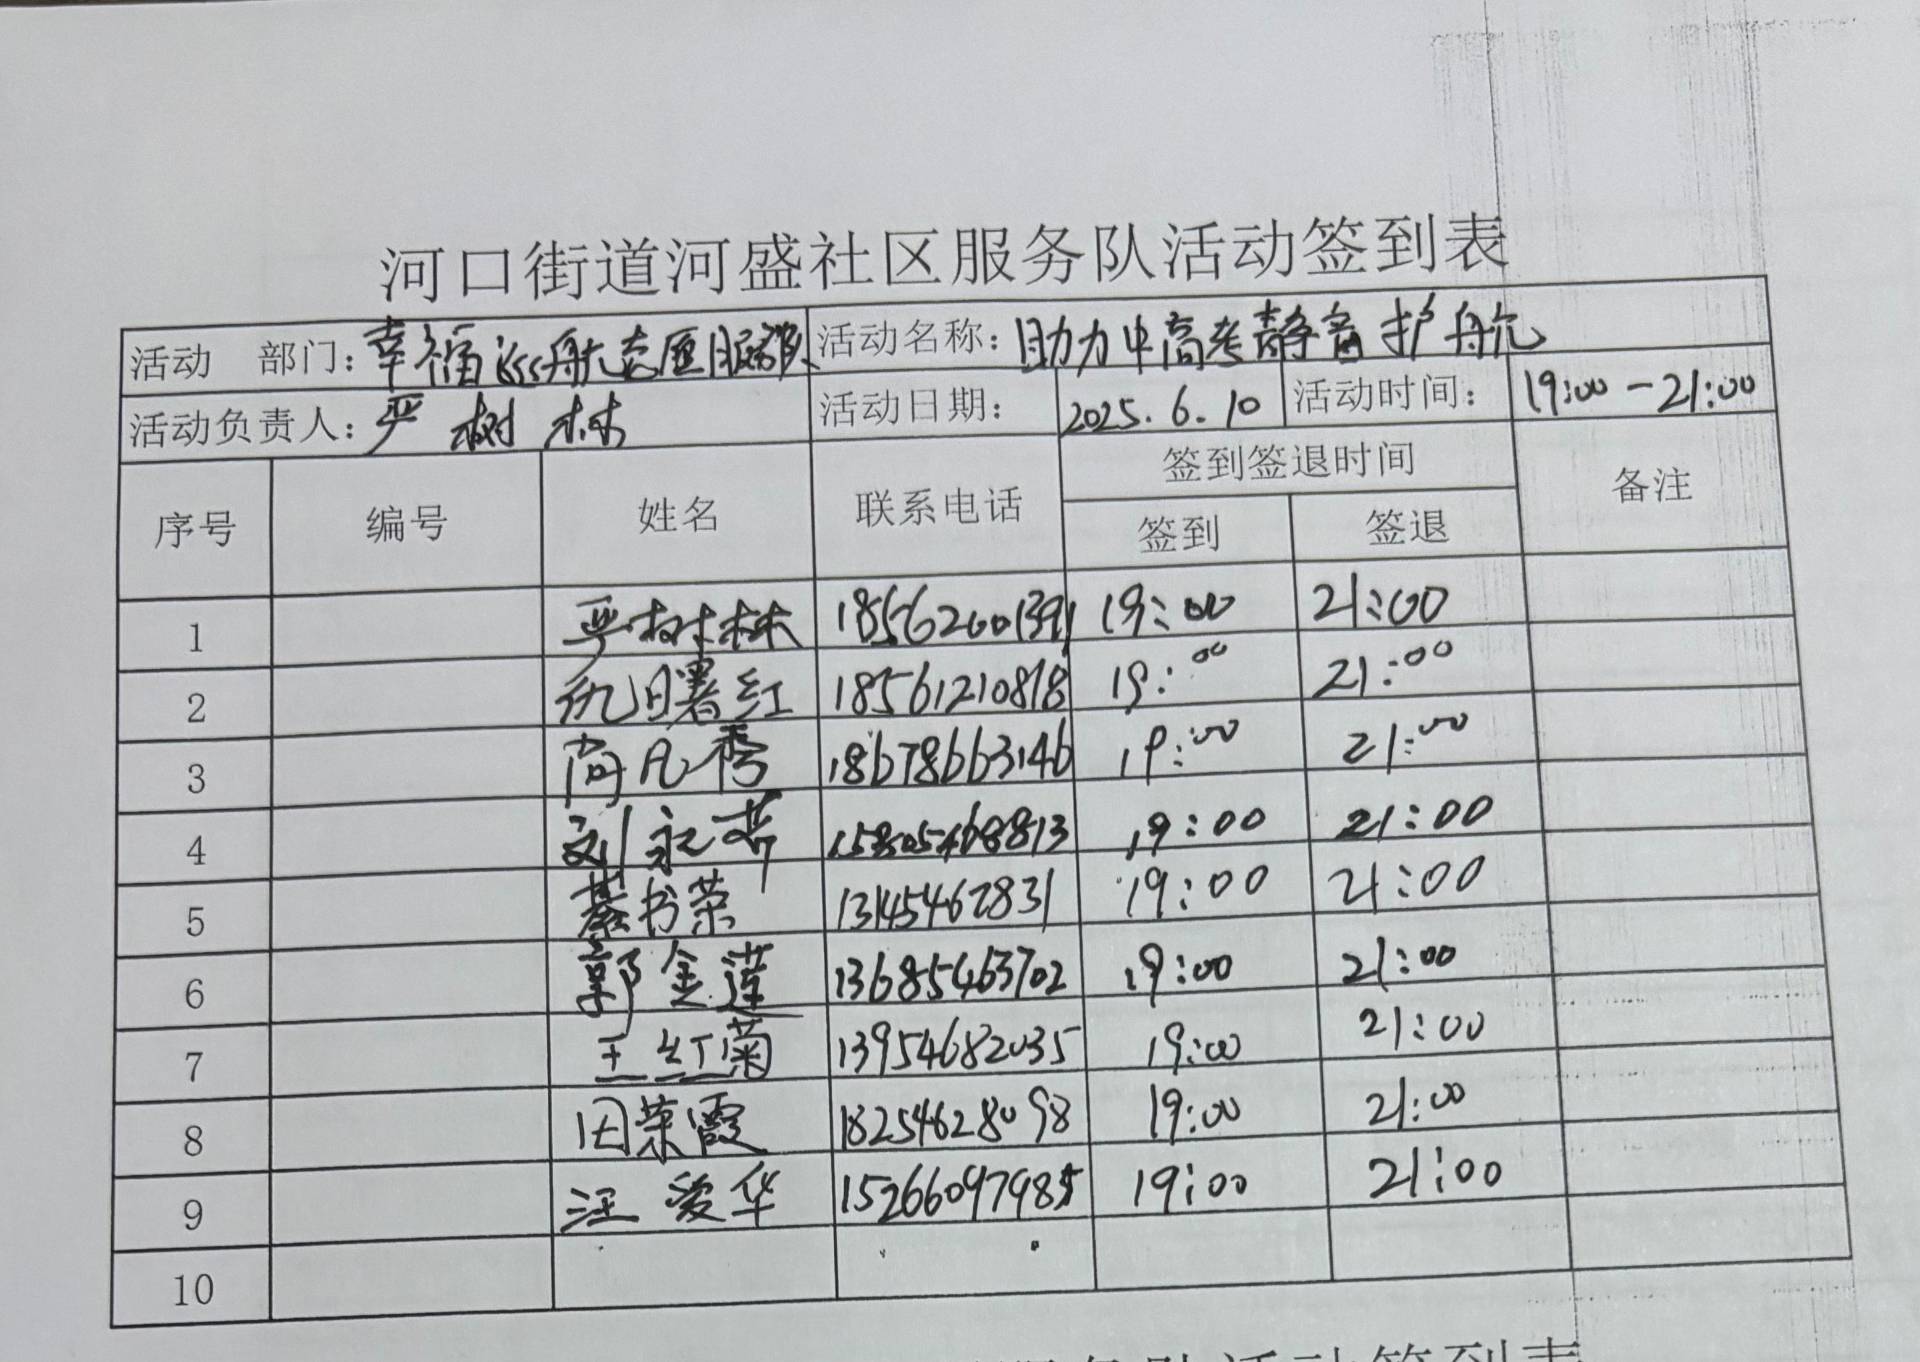 河口街道河盛社区服务队活动签到表
活动 部门：幸福巡航志愿服务队 活动名称：助力中高考静音护航
活动负责人：严树林 活动日期： 2025.6.10 活动时间： 19:00-21:00
序号 编号 姓名 联系电话 签到签退时间 备注
签到 签退
1 严树林 18562601391 19:00 21:00
2 仇曙红 18561210818 19:00 21:00
3 尚凡秀 18678663146 19:00 21:00
4 刘永芹 15805468813 19:00 21:00
5 綦书荣 13145462831 19:00 21:00
6 郭金莲 13685463702 19:00 21:00
7 王红菊 13954682035 19:00 21:00
8 田荣霞 18254628098 19:00 21:00
9 汪爱华 15266097985 19:00 21:00
10
服务队活动签到表